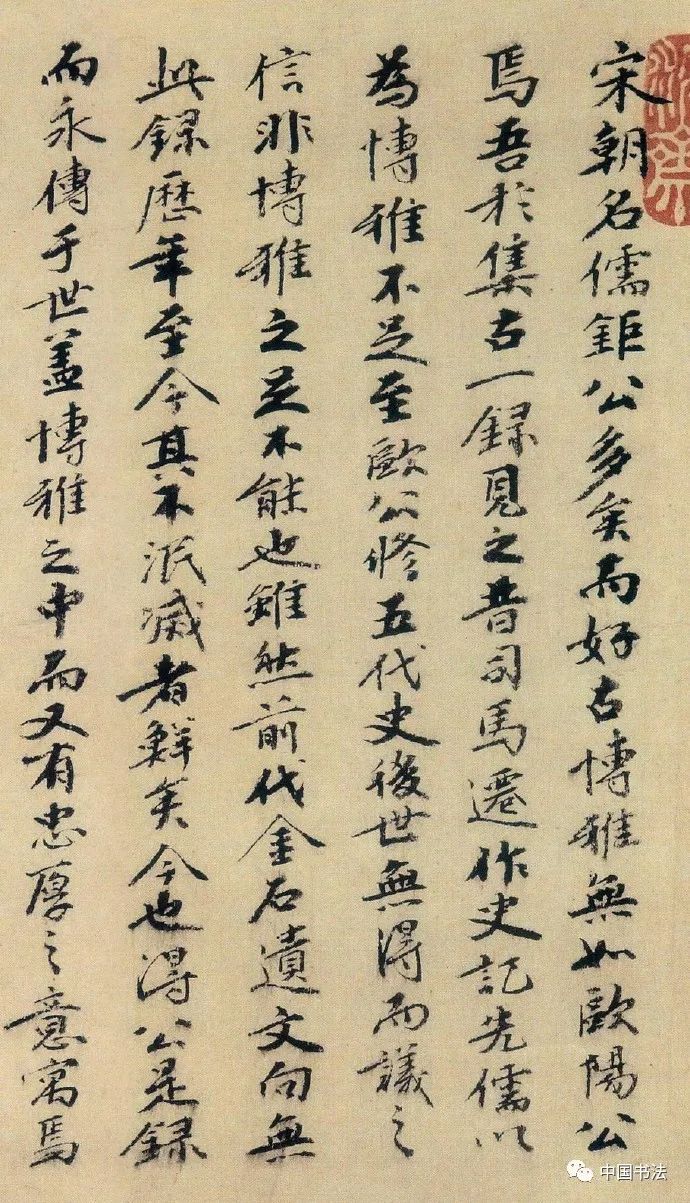 宋朝名儒鉅公多矣而好古博雅無如歐陽公
焉吾於集古一録見之昔司馬遷作史記先儒以
為博雅不足至歐公修五代史後世無得而議之
信非博雅之足不能也雖然前代金石遺文向無
此録歷年至今其不泯滅者鮮矣今也得公是録
而永傳于世蓋博雅之中而又有忠厚之意寓焉
中国书法